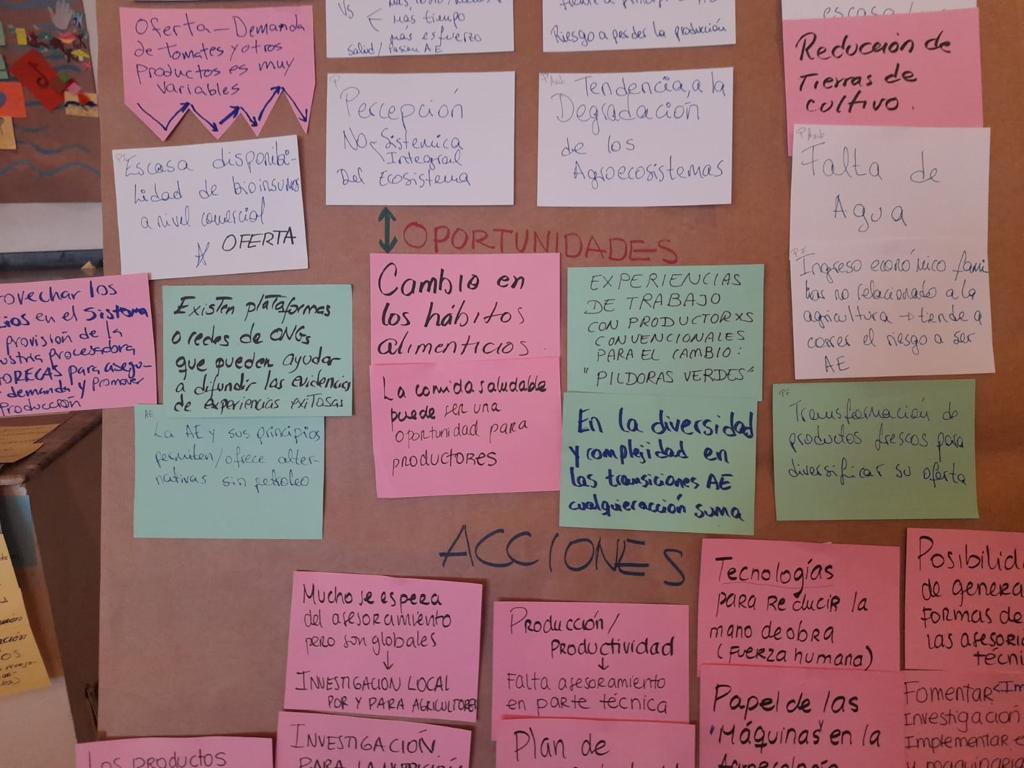 Oferta – Demanda
de tomates y otros
productos es muy
variables
Vs
más tiempo
más esfuerzo
salud / Pasión AE
Riesgo a perder la producción
Reducción de
Tierras de
cultivo.
Percepción
No Sistémica
Integral
Del Ecosistema
Tendencia a la
Degradación
de los
Agroecosistemas
Falta de
Agua
Escasa disponibi-
lidad de bioinsumos
a nivel comercial
OFERTA
Ingreso económico fami
no relacionado a la
agricultura → tende a
correr el riesgo a ser
AE
OPORTUNIDADES
rovechar los
cios en el Sistema
provisión de la
ustria procesadora
ORECAS para
demanda y Promover
Producción
Existen plataformas
o redes de ONGs
que pueden ayudar
a difundir las evidencias
de experiencias exitosas
La AE y sus principios
permiten/ofrece alter-
nativas sin petroleo
Cambio en
los hábitos
alimenticios.
La comida saludable
puede ser una
oportunidad para
productores
EXPERIENCIAS
DE TRABAJO
CON PRODUCTORXS
CONVENCIONALES
PARA EL CAMBIO:
"PILDORAS VERDES"
En la diversidad
y complejidad en
las transiciones AE
cualquier acción suma
Transformación de
productos frescos para
diversificar su oferta
ACCIONES
Mucho se espera
del asesoramiento
pero son globales
↓
INVESTIGACION LOCAL
POR Y PARA AGRICULTORES
INVESTIGACIÓN
Los PRODUCTOS
Producción/
Productividad
↓
Falta asesoramiento
en parte técnica
Plan de
Tecnologías
para reducir la
mano de obra
(Fuerza humana)
Papel de las
"Máquinas" en la
Agroecología
Posibilid
de genera
formas de
las asesoría
técni
Fomentar
Investigación
Implementar
y maquinaria